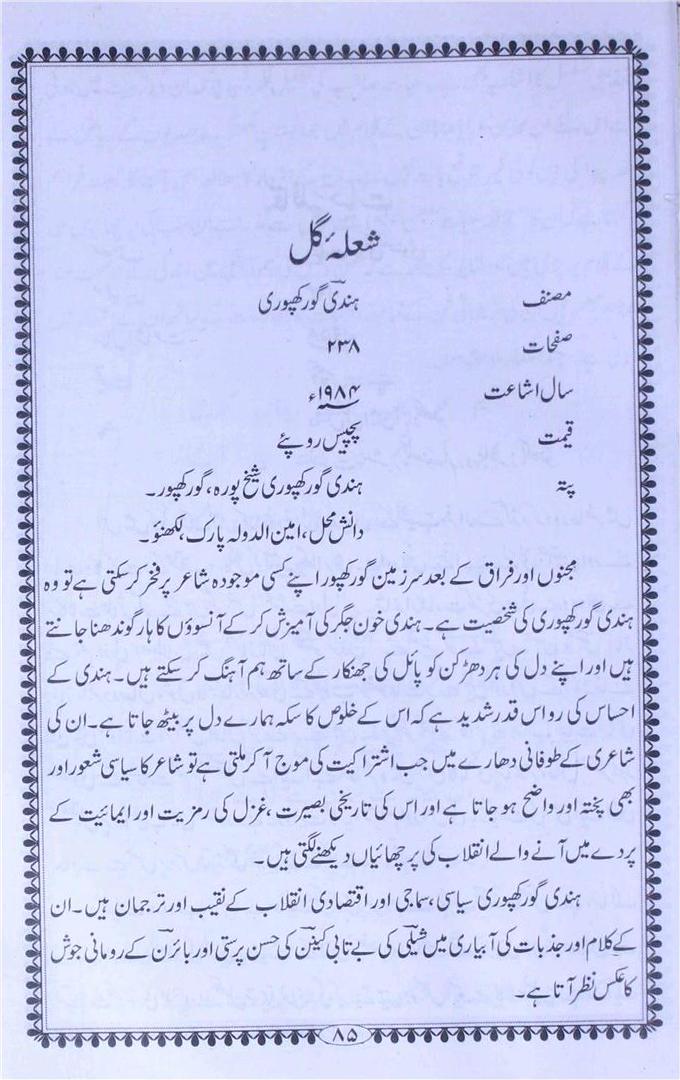 شعلۂ گل
مصنف ہندی گورکھپوری
صفحات ۲۳۸
سال اشاعت ۱۹۸۴ء
قیمت پچیس روپئے
پتہ ہندی گورکھپوری شیخ پورہ، گورکھپور۔
دانش محل، امین الدولہ پارک، لکھنؤ۔
مجنوں اور فراق کے بعد سرزمین گورکھپور اپنے کسی موجودہ شاعر پر فخر کرسکتی ہے تو وہ
ہندی گورکھپوری کی شخصیت ہے۔ ہندی خون جگر کی آمیزش کرکے آنسوؤں کا ہار گوندھنا جانتے
ہیں اور اپنے دل کی ہر دھڑکن کو پائل کی جھنکار کے ساتھ ہم آہنگ کرسکتے ہیں۔ ہندی کے
احساس کی رو اس قدر شدید ہے کہ اس کے خلوص کا سکہ ہمارے دل پر بیٹھ جاتا ہے۔ ان کی
شاعری کے طوفانی دھارے میں جب اشتراکیت کی موج آکر ملتی ہے تو شاعر کا سیاسی شعور اور
بھی پختہ اور واضح ہو جاتا ہے اور اس کی تاریخی بصیرت، غزل کی رمزیت اور ایمائیت کے
پردے میں آنے والے انقلاب کی پرچھائیاں دیکھنے لگتی ہیں۔
ہندی گورکھپوری سیاسی، سماجی اور اقتصادی انقلاب کے نقیب اور ترجمان ہیں۔ ان
کے کلام اور جذبات کی آبیاری میں شیلی کی بے تابی کیٹس کی حسن پرستی اور بائرن کے رومانی جوش
کا عکس نظر آتا ہے۔
۸۵